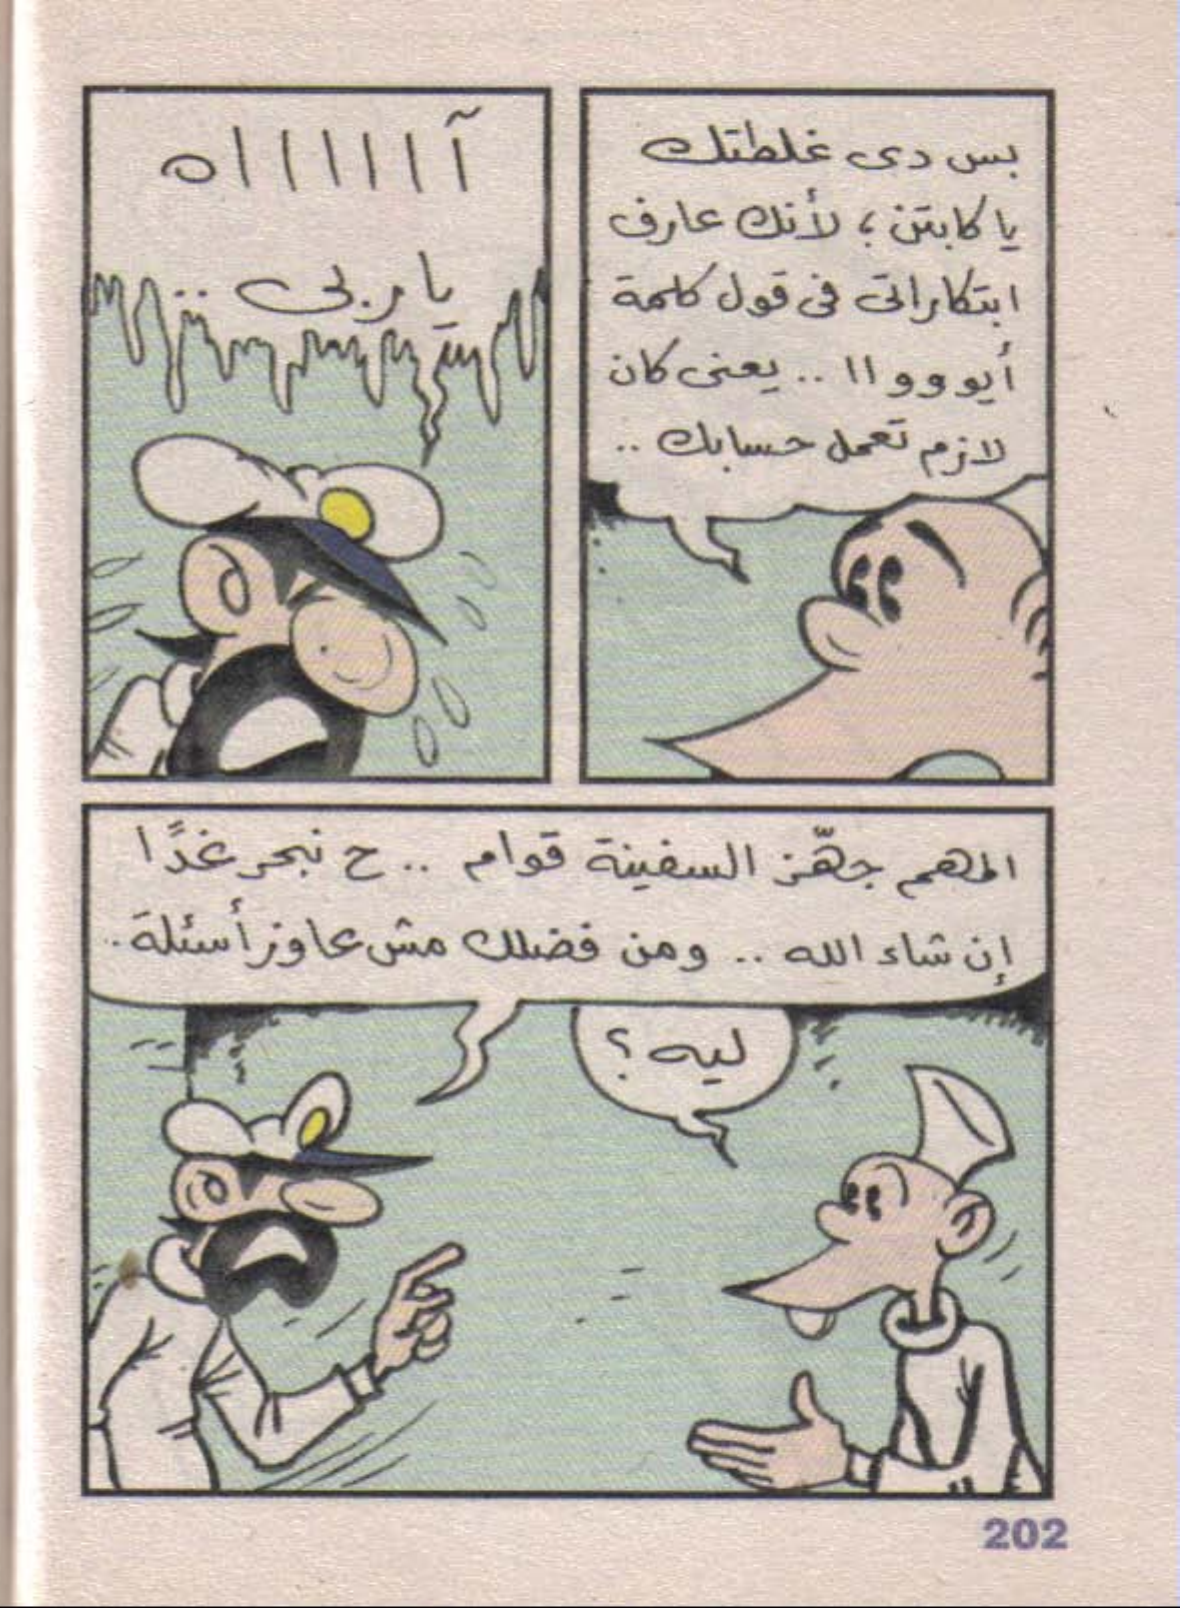 بس دى غلطتك
يا كابتن ؛ لأنك عارف
ابتكاراتى فى قول كلمة
أيو و و اا .. يعنى كان
لازم تعمل حسابك ..
آ ا ا ا ا ا اه
يا ربى ..
المهم جهّز السفينة قوام .. ح نبحر غدًا
إن شاء الله .. ومن فضلك مش عاوز أسئلة ..
ليه ؟
202